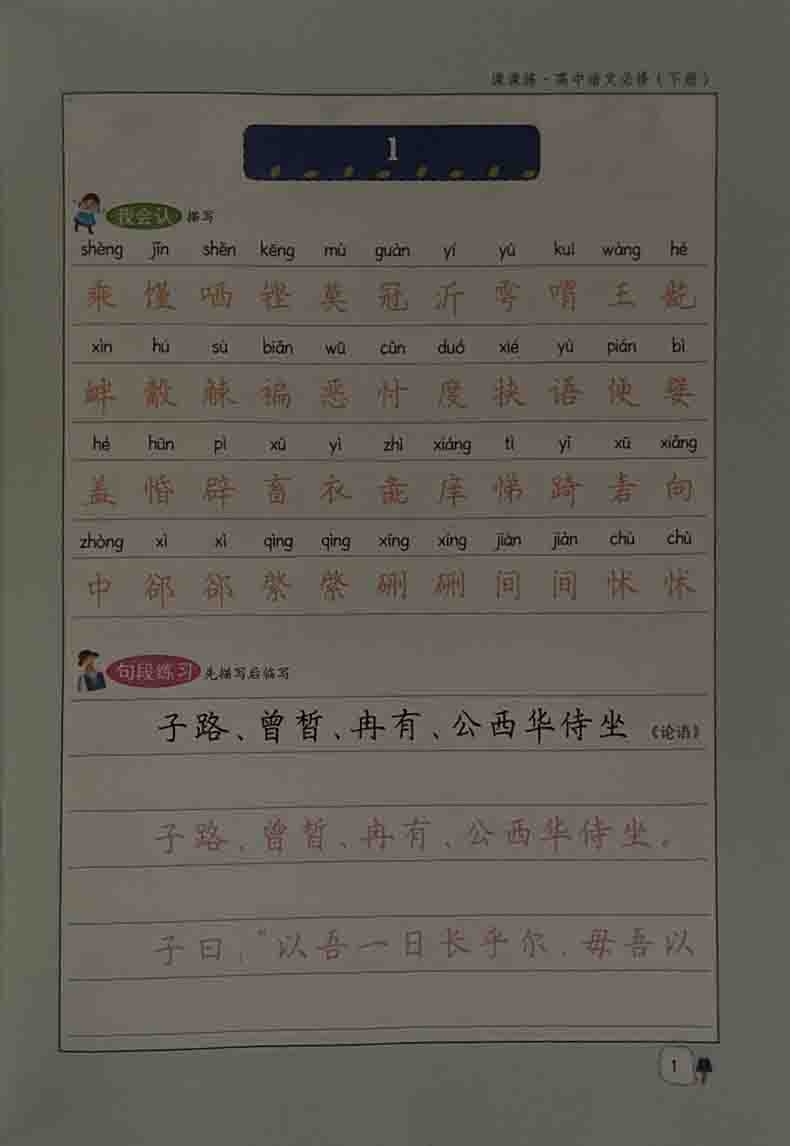 课课练·高中语文必修（下册）
1
我会认 描写
shèng jǐn shěn kēng mù guàn yí yú kuì wàng hé
乘 馑 哂 铿 莫 冠 沂 雩 喟 王 龁
xìn hú sù biǎn wū cǔn duó xié yù pián bì
衅 觳 觫 褊 恶 忖 度 挟 语 便 嬖
hé hūn pì xù yì zhì xiáng tì yǐ xū xiǎng
盖 惛 辟 畜 衣 彘 庠 悌 踦 砉 向
zhòng xì xì qìng qìng xíng xíng jiàn jiàn chù chù
中 郤 郤 綮 綮 硎 硎 间 间 怵 怵
句段练习 先描写后临写
子路、曾皙、冉有、公西华侍坐 《论语》
子路、曾皙、冉有、公西华侍坐。
子曰：“以吾一日长乎尔，毋吾以
1